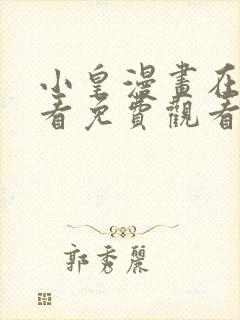 小皇漫畫在
看免費觀看
郭秀麗